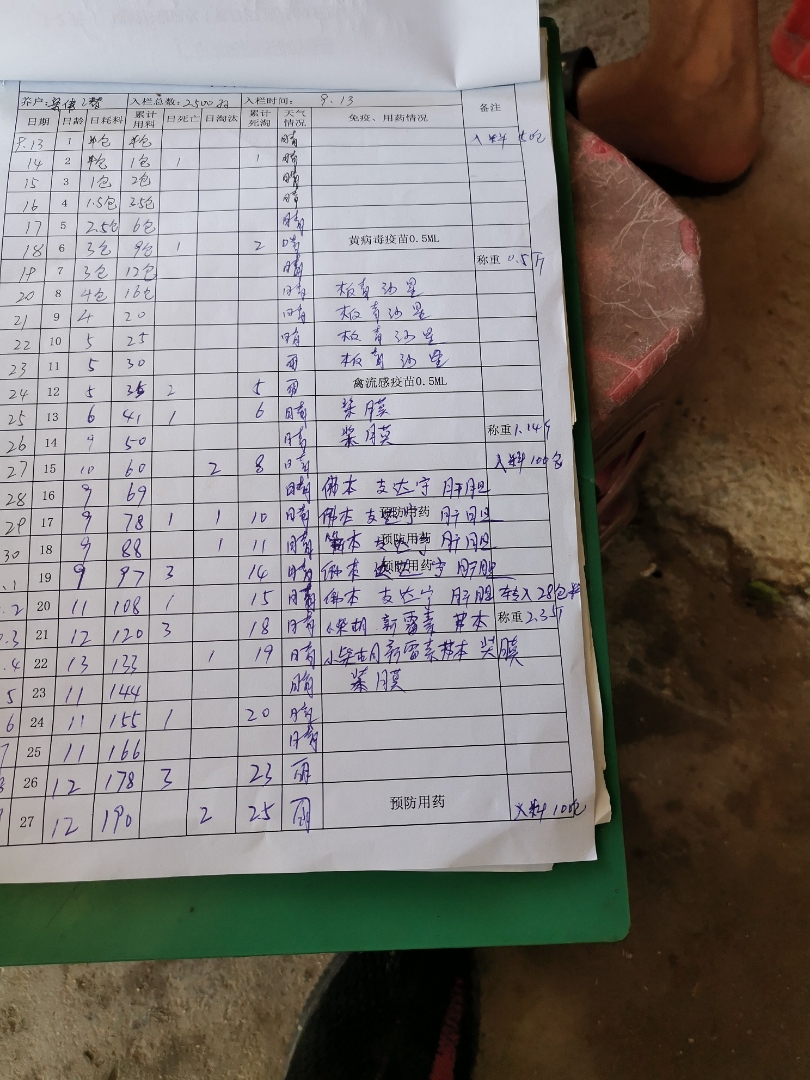 养户: 入栏总数: 2500 入栏时间: 9.13 备注
日期 日龄 日耗料 累计用料 日死亡 日淘汰 累计死淘 天气情况 免疫、用药情况
9.13 1 半包 半包 晴 入料
14 2 半包 1包 1 1 晴
15 3 1包 2包 晴
16 4 1.5包 3.5包 晴
17 5 2.5包 6包 晴
18 6 3包 9包 1 2 晴 黄病毒疫苗0.5ML
19 7 3包 12包 晴 称重 0.5斤
20 8 4包 16包 晴 板青沙星
21 9 4 20 晴 板青沙星
22 10 5 25 晴 板青沙星
23 11 5 30 雨 板青沙星
24 12 5 35 2 5 雨 禽流感疫苗0.5ML
25 13 6 41 1 6 晴 浆膜
26 14 9 50 晴 浆膜 称重1.14斤
27 15 10 60 2 8 晴 入料100包
28 16 9 69 晴 支达宁 肝胆
29 17 9 78 1 1 10 晴 支达宁 预防用药 肝胆
30 18 9 88 1 11 晴 预防用药 肝胆
.1 19 9 97 3 14 晴 预防用药 肝胆
.2 20 11 108 1 15 晴 支达宁 肝胆 转入28包料
.3 21 12 120 3 18 晴 小柴胡 新霉素 称重2.35斤
.4 22 13 133 1 19 晴 小柴胡 新霉素 浆膜
5 23 11 144 晴 浆膜
6 24 11 155 1 20 晴
7 25 11 166 晴
26 12 178 3 23 雨
27 12 190 2 25 雨 预防用药 入料100包